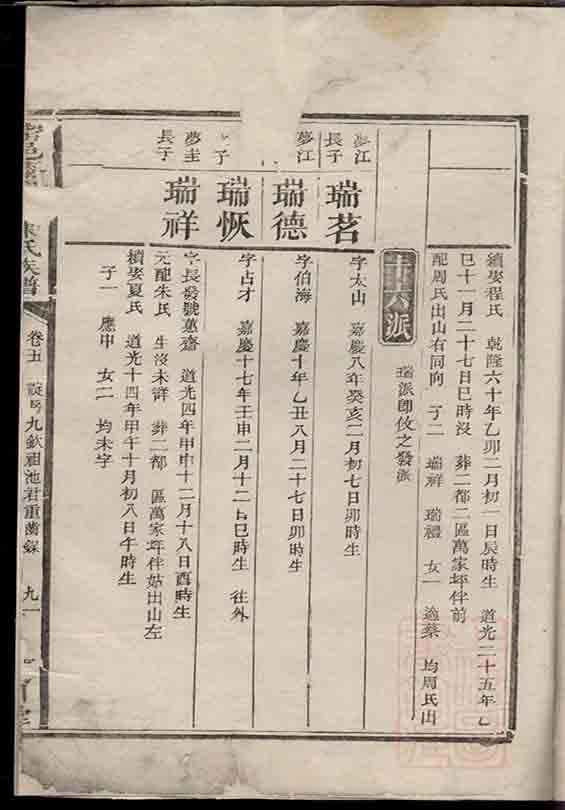 續娶程氏 乾隆六十年乙卯二月初一日辰時生 道光二十五年乙
巳十一月二十七日巳時沒 葬二都二區萬家坪伴前
配周氏出山有同向 子二 瑞祥 瑞禮 女一 適蔡 均周氏出
十六派
瑞派卽攸之發派
夢江
長子
瑞茗
字太山 嘉慶八年癸亥二月初七日卯時生
夢江
子
瑞德
字伯海 嘉慶十年乙丑八月二十七日卯時生
子
瑞恢
字占才 嘉慶十七年壬申二月十二日巳時生 往外
夢圭
長子
瑞祥
字長發號蕙齋 道光四年甲申十二月十八日酉時生
元配朱氏 生沒未詳 葬二都 區萬家坪伴姑出山左
續娶夏氏 道光十四年甲午十月初八日午時生
子一 應申 女二 均未字
氏族譜
卷五
九欽祖池君重茜錄
九一